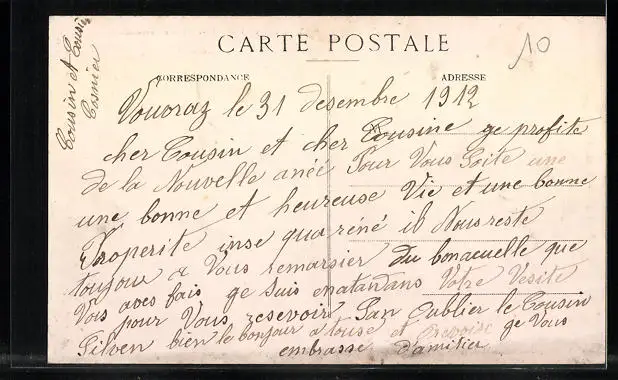 CARTE POSTALE
10
CORRESPONDANCE
ADRESSE
Vouvray le 31 desembre 1912
cher Cousin et cher Cousine ge profite
de la Nouvelle anéé Pour Vous Soite une
une bonne et heureuse Vie et une bonne
Properité inse qua réné il Nous reste
toujour a Vous remarsier du bonacuelle que
Vous aves fais ge suis enatandans Votre Vesite
pour Vous resevoir San Oublier le Cousin
Silven bien le bonjour a touse et ge Vous
embrasse d'amitier
Cousin et Cousine